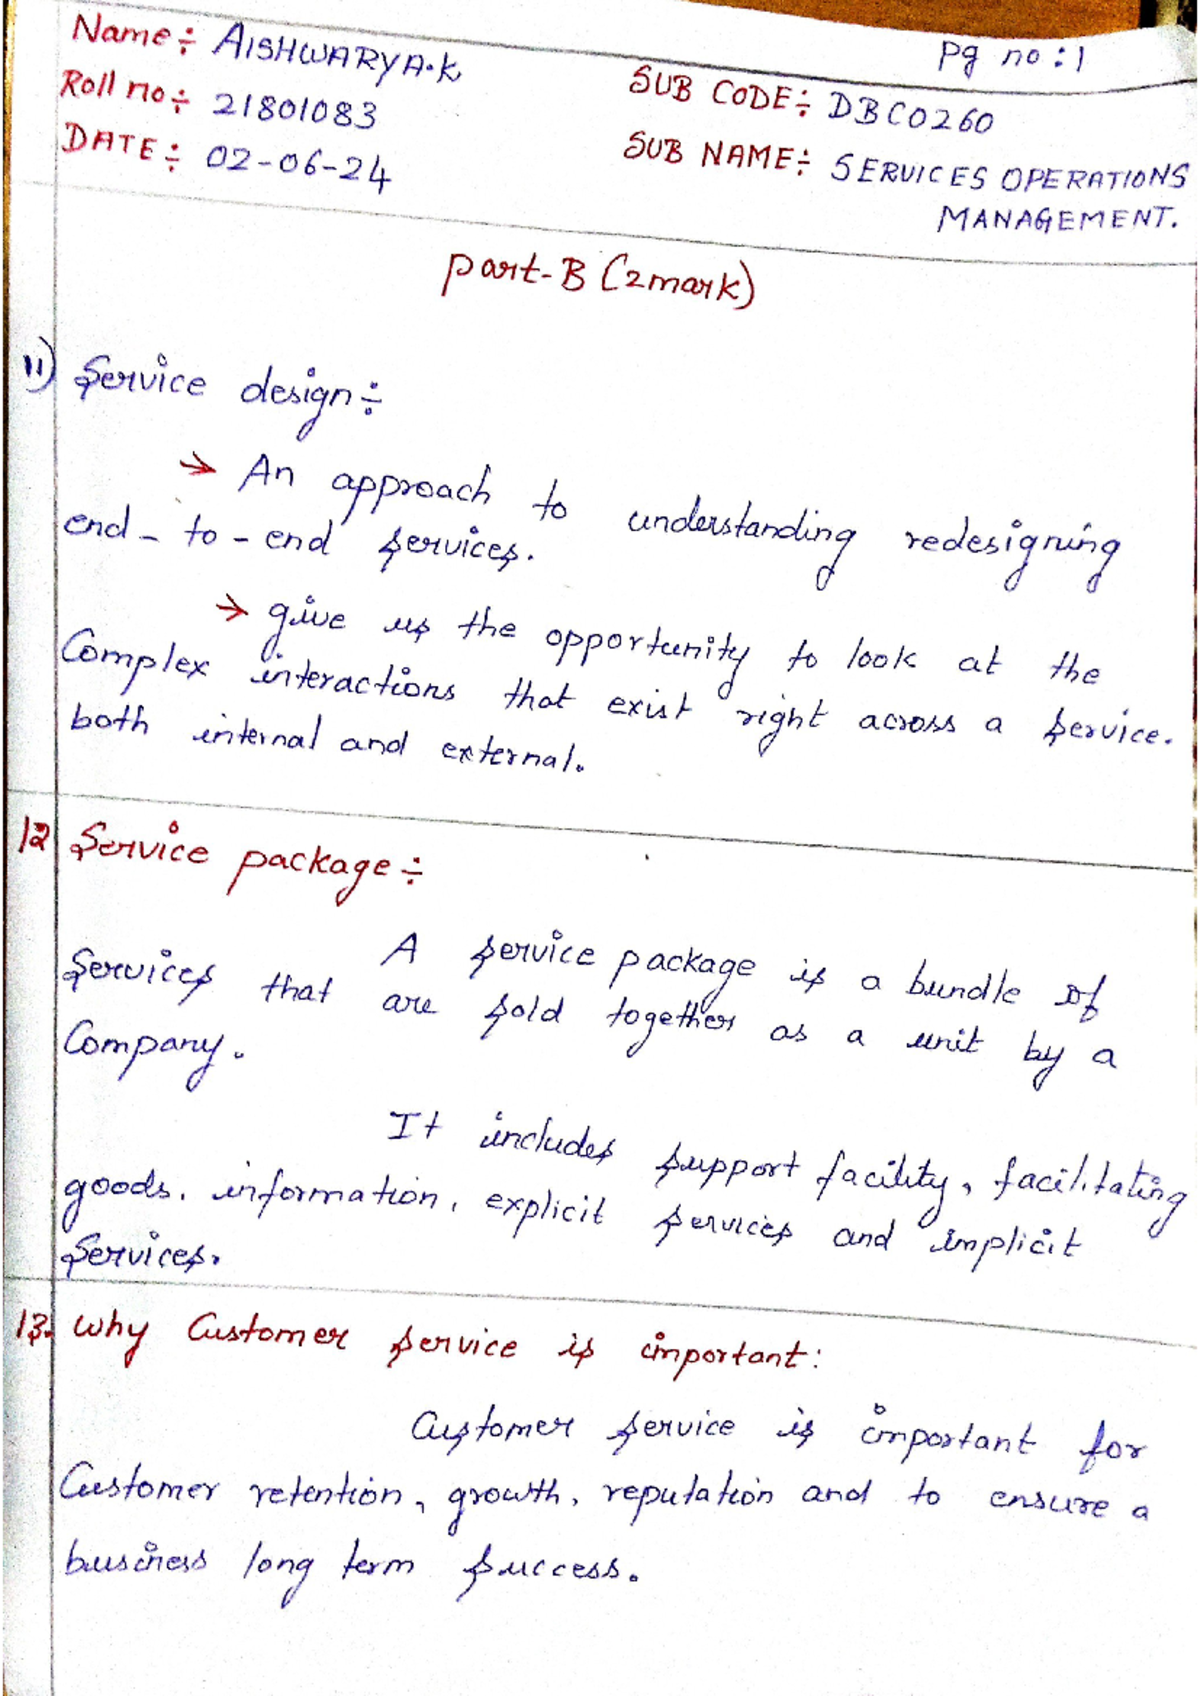 Pg no : 1
Name ÷ AISHWARYA.K
Roll no ÷ 21801083
DATE ÷ 02-06-24
SUB CODE ÷ DBCO260
SUB NAME ÷ SERVICES OPERATIONS
MANAGEMENT.
Part-B (2mark)
11) Service design ÷
→ An approach to understanding redesigning
end-to-end services.
→ give us the opportunity to look at the
Complex interactions that exist right across a service.
both internal and external.
12 Service package ÷
A service package is a bundle of
Services that are sold together as a unit by a
Company.
It includes support facility, facilitating
goods, information, explicit services and implicit
Services.
13. Why Customer service is important:
Customer service is important for
Customer retention, growth, reputation and to ensure a
business long term success.